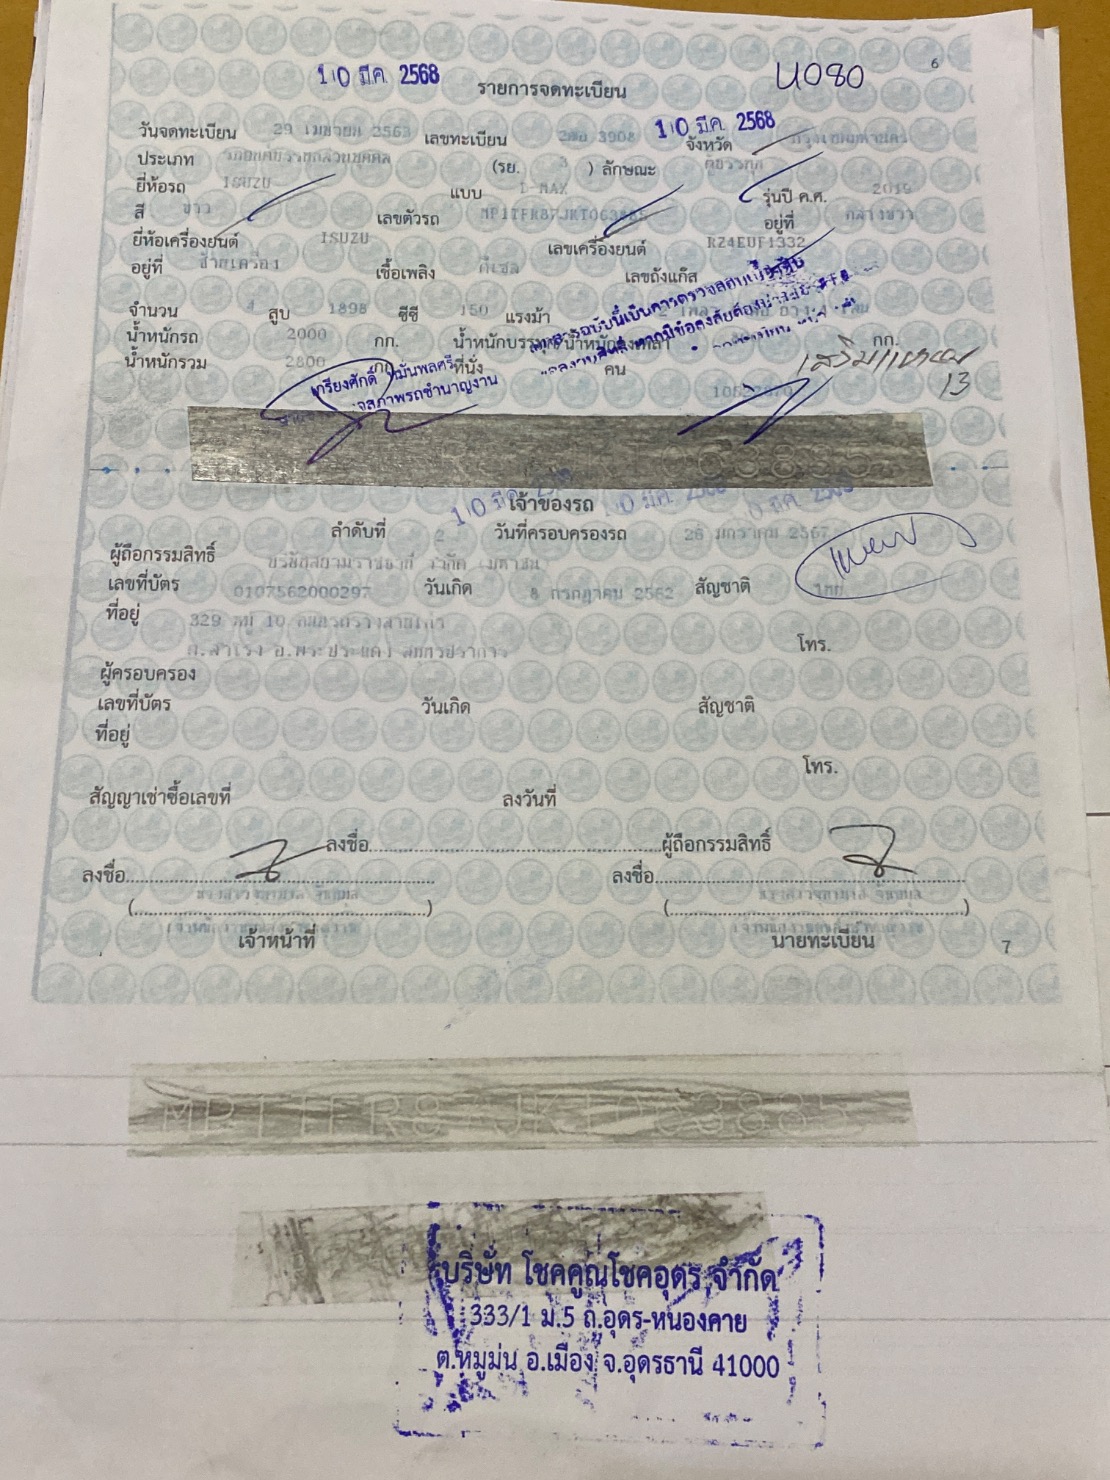 10 มี.ค. 2568 รายการจดทะเบียน U080 6
วันจดทะเบียน 29 เมษายน 2563 เลขทะเบียน 3908 10 มี.ค. 2568 จังหวัด กรุงเทพมหานคร
ประเภท รถยนต์บรรทุกส่วนบุคคล (รย. 3 ) ลักษณะ ตู้บรรทุก
ยี่ห้อรถ ISUZU แบบ D-MAX รุ่นปี ค.ศ. 2019
สี ขาว เลขตัวรถ MP1TFR87JKT063885 อยู่ที่ กลางขวา
ยี่ห้อเครื่องยนต์ ISUZU เลขเครื่องยนต์ RZ4EUF1332
อยู่ที่ ซ้ายเครื่อง เชื้อเพลิง ดีเซล เลขถังแก๊ส
จำนวน 4 สูบ 1898 ซีซี 150 แรงม้า
น้ำหนักรถ 2000 กก. น้ำหนักบรรทุก/น้ำหนักลงเพลา กก.
น้ำหนักรวม 2800 กก. ที่นั่ง คน
เสริมแหนบ
13
เกรียงศักดิ์
063885
10 มี.ค. เจ้าของรถ 10 มี.ค.
ลำดับที่ 2 วันที่ครอบครองรถ 26 มกราคม 2567
ผู้ถือกรรมสิทธิ์ บริษัทสยามราชธานี จำกัด (มหาชน)
เลขที่บัตร 0107562000297 วันเกิด 8 กรกฎาคม 2562 สัญชาติ ไทย
ที่อยู่ 329 หมู่ 10 ถนนรถรางสายเก่า
ต.สำโรง อ.พระประแดง สมุทรปราการ โทร.
ผู้ครอบครอง
เลขที่บัตร วันเกิด สัญชาติ
ที่อยู่
โทร.
สัญญาเช่าซื้อเลขที่ ลงวันที่
ลงชื่อ ผู้ถือกรรมสิทธิ์
ลงชื่อ ลงชื่อ
( ) ( )
เจ้าหน้าที่ นายทะเบียน 7
MP1TFR8 JKT063885
บริษัท โชคคูณโชคอุดร จำกัด
333/1 ม.5 ถ.อุดร-หนองคาย
ต.หมูม่น อ.เมือง จ.อุดรธานี 41000